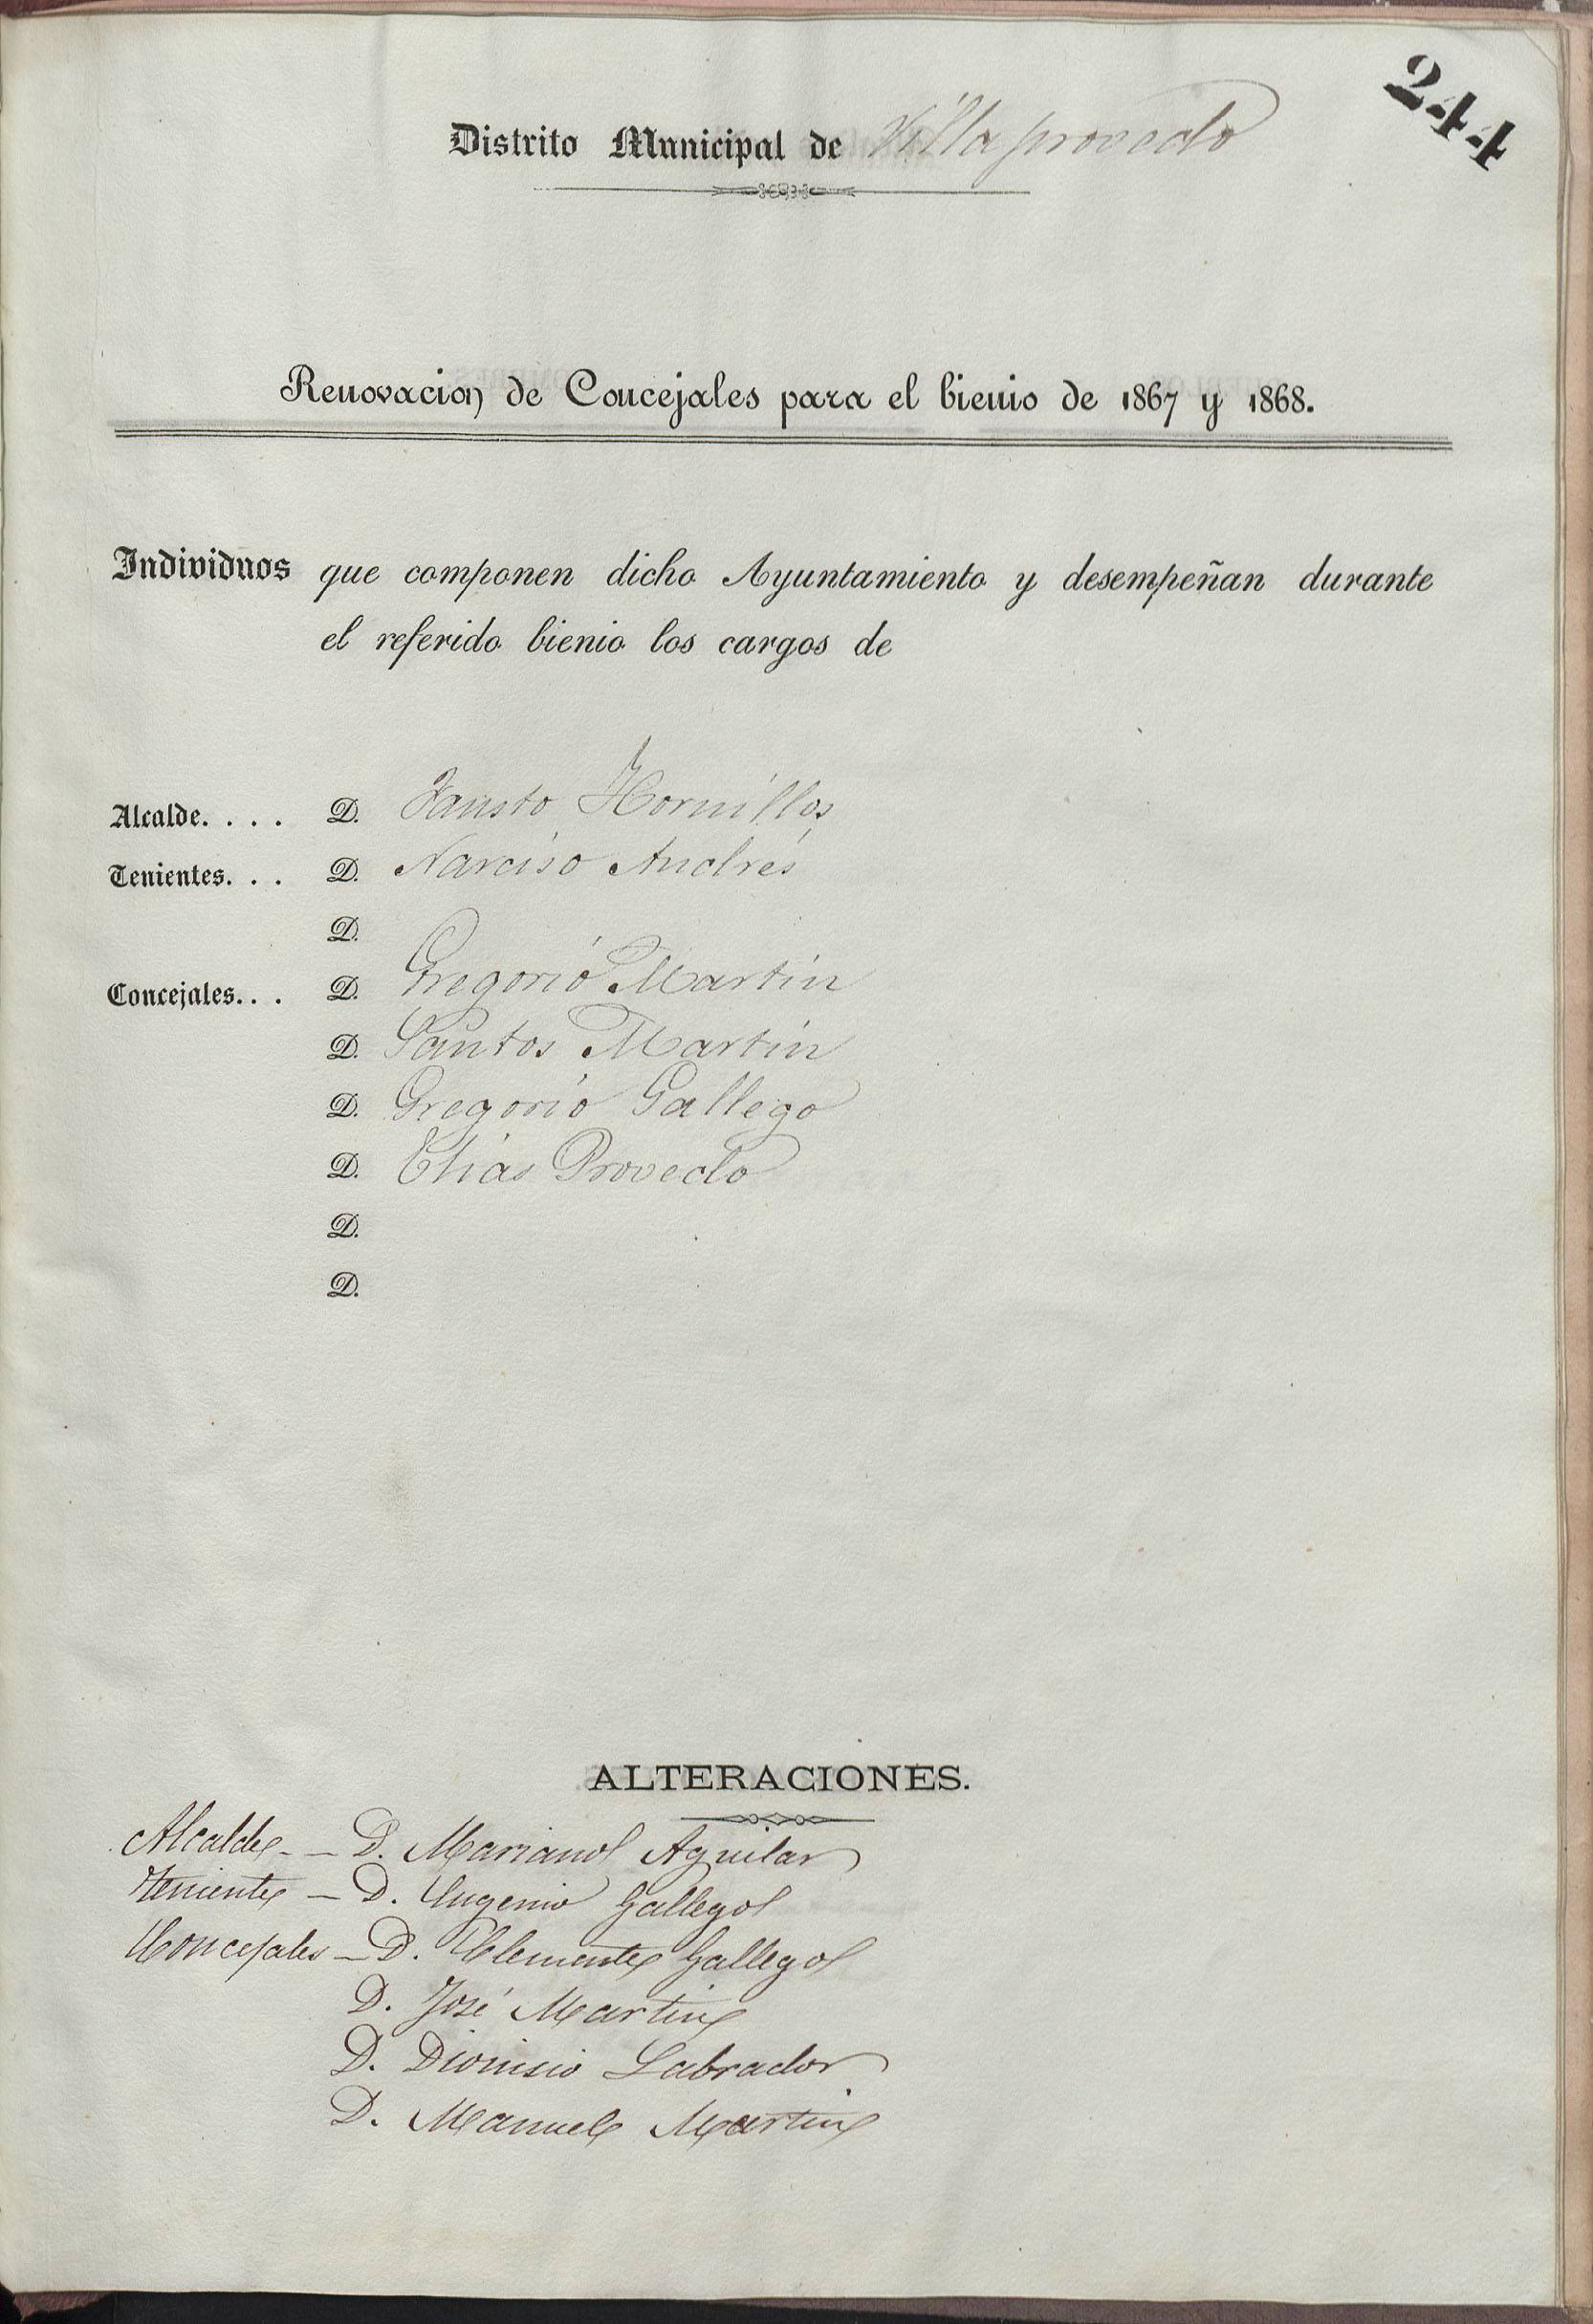 244
Distrito Municipal de Villaprovedo
Renovacion de Concejales para el bienio de 1867 y 1868.
Individuos que componen dicho Ayuntamiento y desempeñan durante
el referido bienio los cargos de
Alcalde. . . . D. Fausto Hornillos
Tenientes. . . D. Narciso Andrés
D.
Concejales. . . D. Gregorio Martin
D. Santos Martin
D. Gregorio Gallego
D. Elias Provedo
D.
D.
ALTERACIONES.
Alcalde - - D. Mariano Aguilar
Teniente - D. Eugenio Gallego
Concejales - D. Clemente Gallego
D. José Martin
D. Dionisio Labrador
D. Manuel Martin